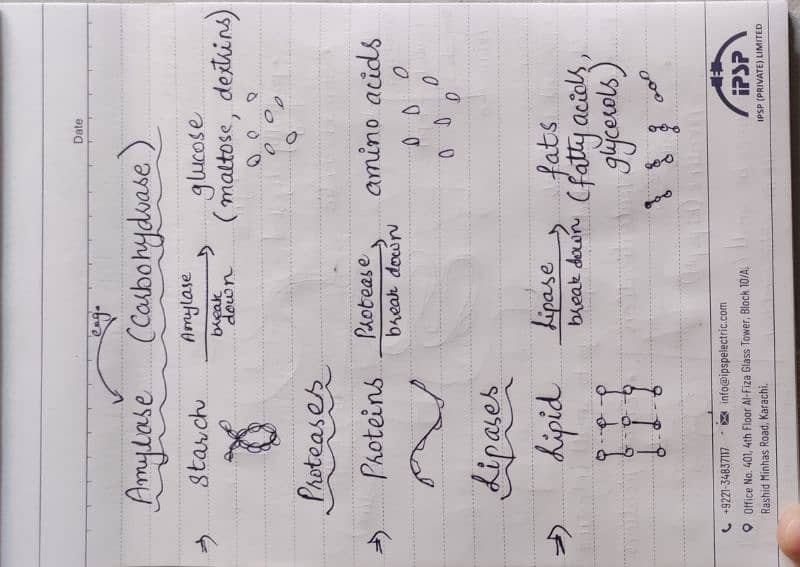 Date
eng.
Amylase (Carbohydrase)
⇒ Starch Amylase → glucose
break down (maltose, dextrins)
Proteases
⇒ Proteins Protease → amino acids
break down
Lipases
⇒ Lipid Lipase → fats
break down (fatty acids,
glycerols)
+9221-34837117 info@ipspelectric.com
Office No. 401, 4th Floor Al-Fiza Glass Tower, Block 10/A,
Rashid Minhas Road, Karachi.
iPSP
IPSP (PRIVATE) LIMITED